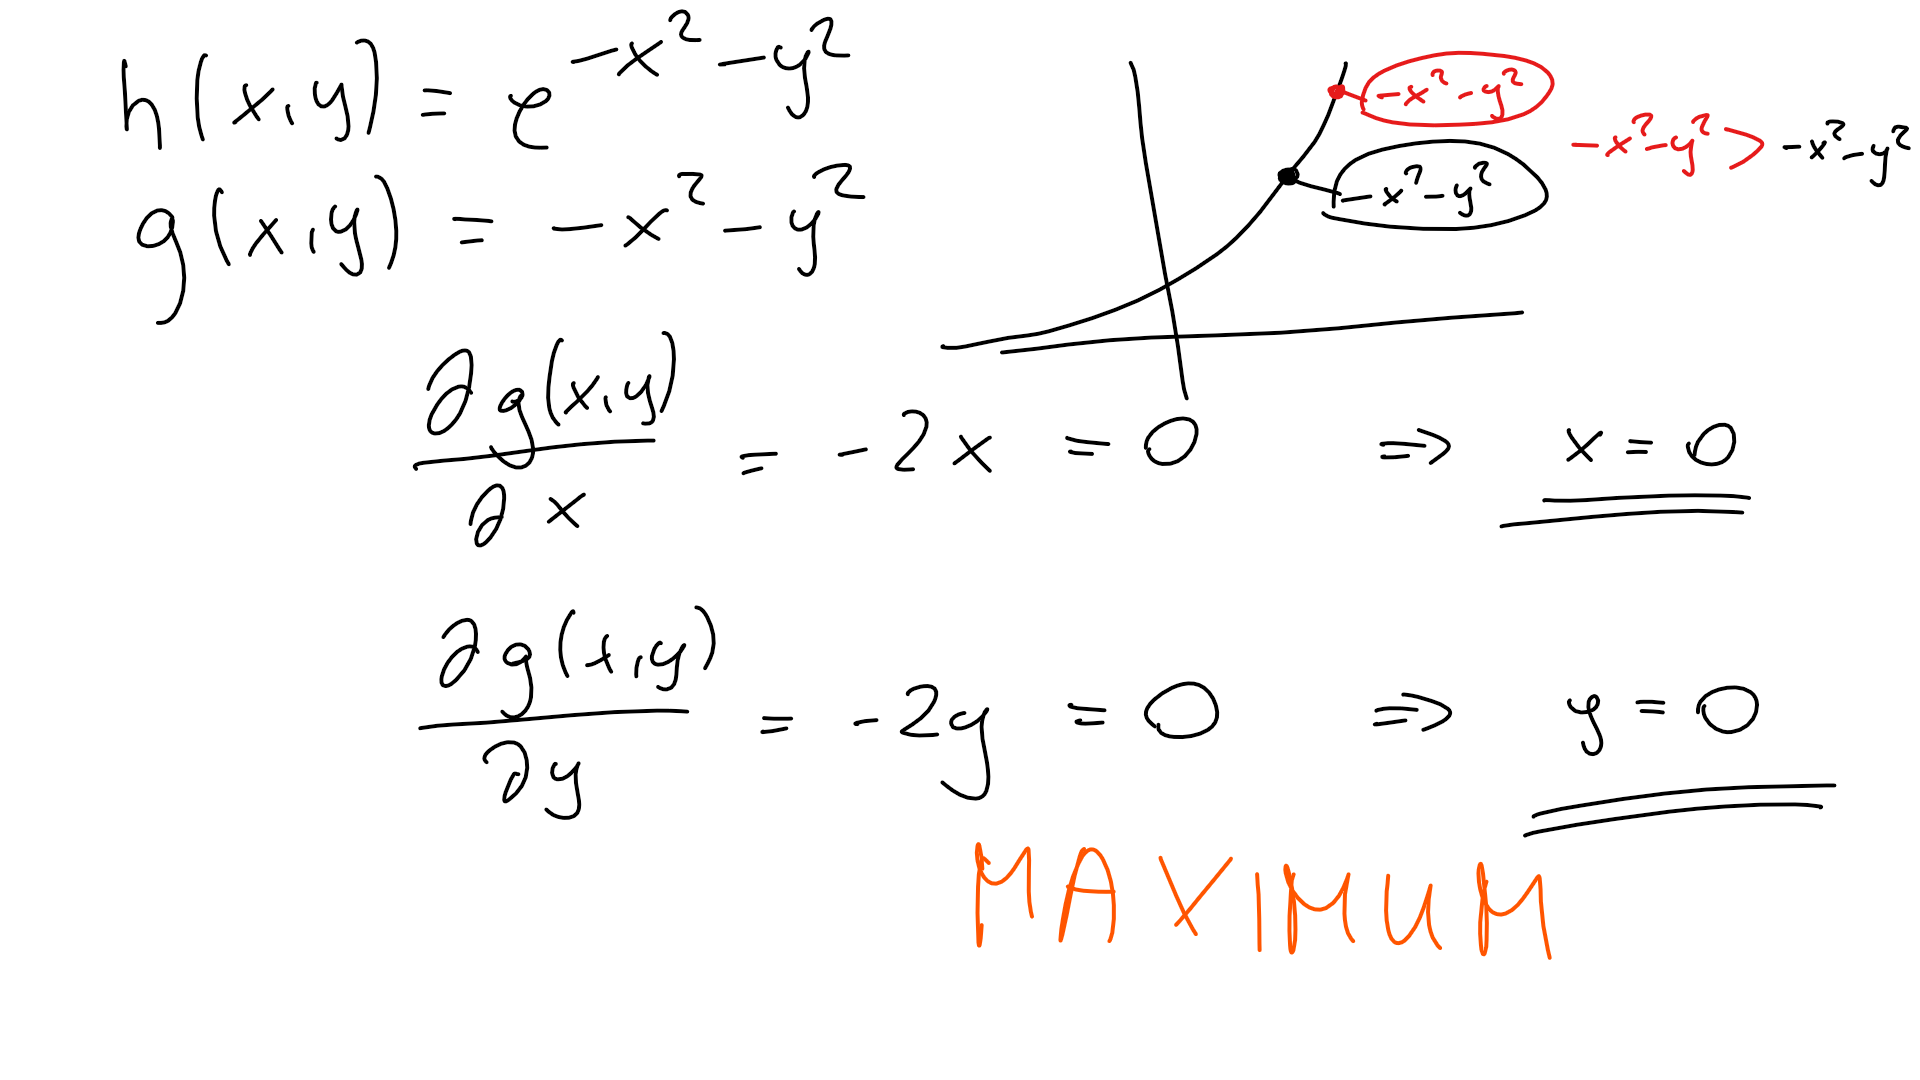 h(x,y) = e^{-x²-y²}
-x²-y²
-x²-y² > -x²-y²
-x²-y²
g(x,y) = -x²-y²
∂g(x,y)/∂x = -2x = 0 ⇒ x = 0
∂g(x,y)/∂y = -2y = 0 ⇒ y = 0
MAXIMUM